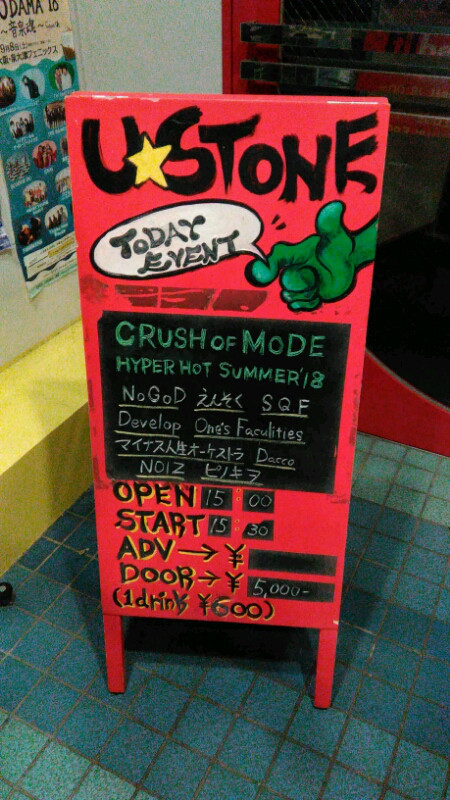 ODAMA 18
~音泉魂~
9月8日(土)
大阪・泉大津フェニックス
U★STONE
TODAY
EVENT
CRUSH OF MODE
HYPER HOT SUMMER'18
NoGoD えんそく SQF
Develop One's Faculities
マイナス人生オーケストラ Dacco
NOIZ ピノキヲ
OPEN 15:00
START 15:30
ADV→¥
DOOR→¥ 5,000-
(1drink ¥600)